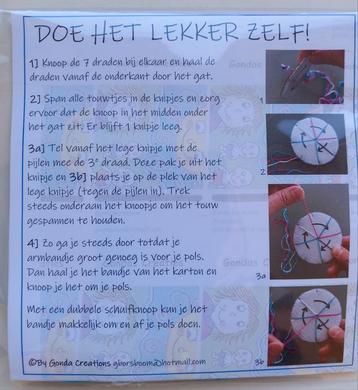 DOE HET LEKKER ZELF!
1] Knoop de 7 draden bij elkaar en haal de
draden vanaf de onderkant door het gat.
2] Span alle touwtjes in de knipjes en zorg
ervoor dat de knoop in het midden onder
het gat zit. Er blijft 1 knipje leeg.
3a] Tel vanaf het lege knipje met de
pijlen mee de 3e draad. Deze pak je uit het
knipje en 3b] plaats je op de plek van het
lege knipje (tegen de pijlen in). Trek
steeds onderaan het knoopje om het touw
gespannen te houden.
4] Zo ga je steeds door totdat je
armbandje groot genoeg is voor je pols.
Dan haal je het bandje van het karton en
knoop je het om je pols.
Met een dubbele schuifknoop kun je het
bandje makkelijk om en af je pols doen.
©By Gonda Creations gborsboom@hotmail.com
1
2
3a
3b